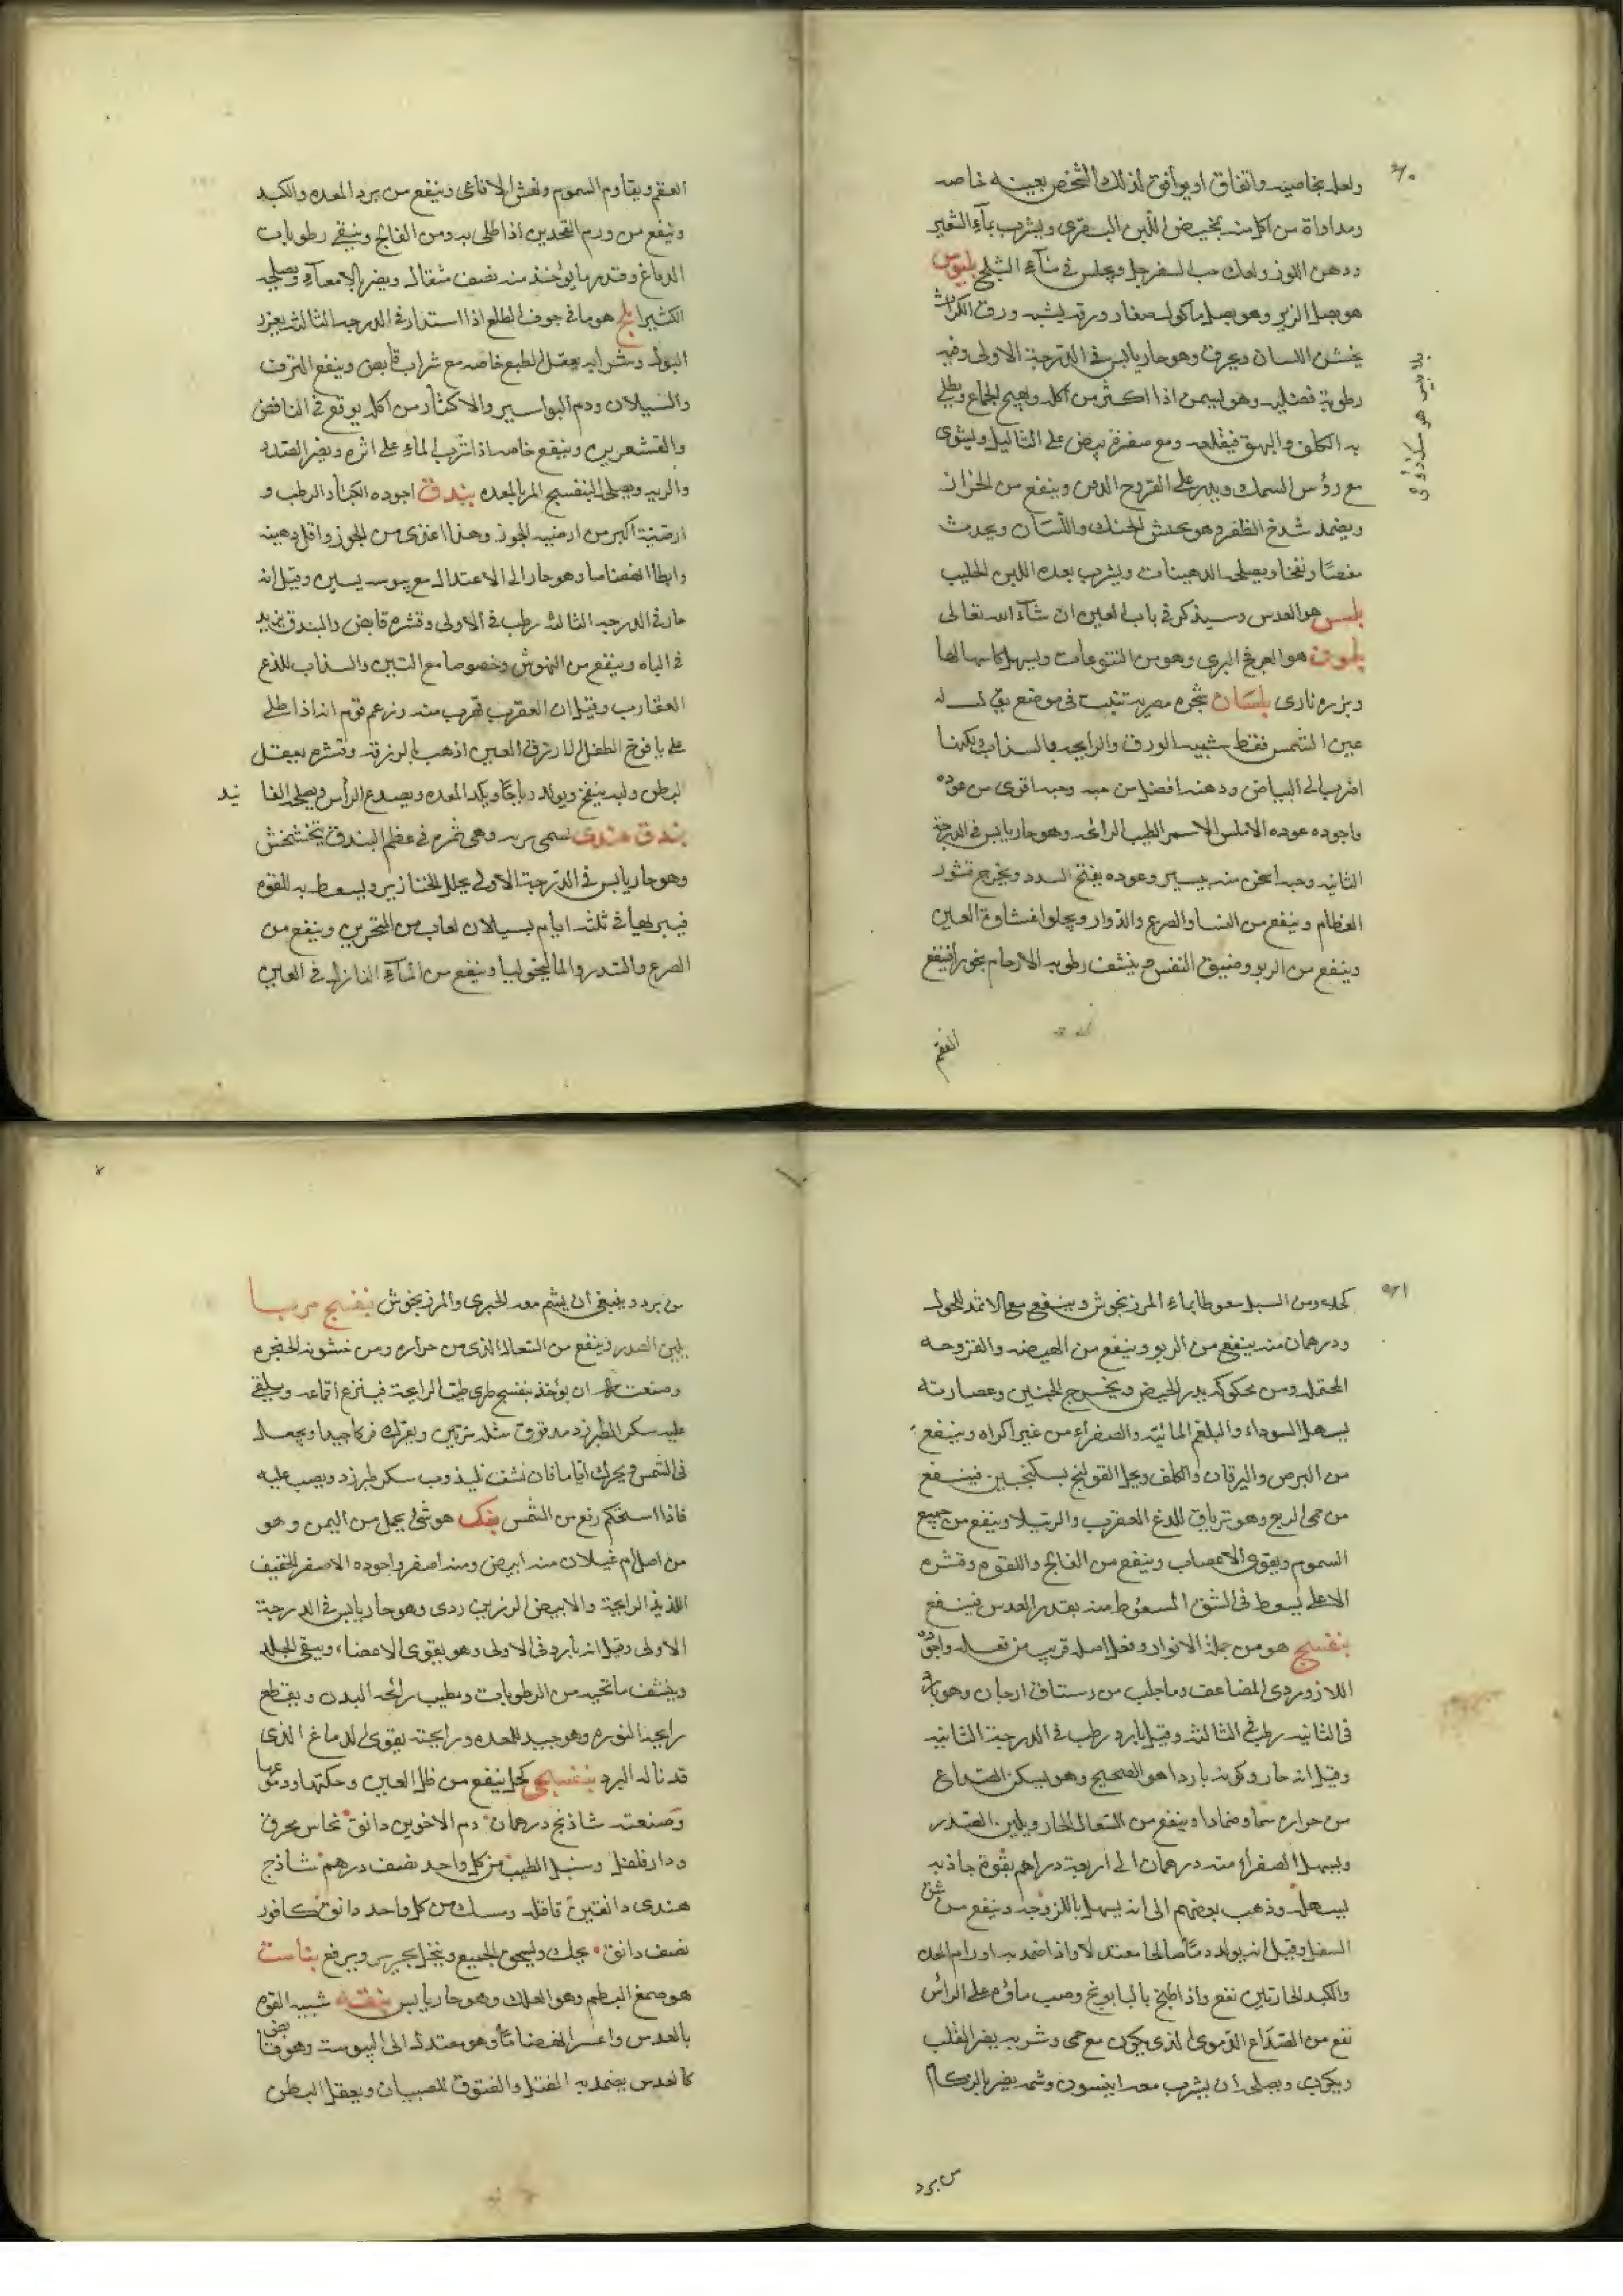 ولعله بخاصيه واتفاق او يوافق لذلك الشخص بعينه خاصه
ومداواة من اكل منه بمخيض اللبن البقرى ويشرب بماء الشعير
ودهن اللوز ولعاب حب السفرجل ويجلس فى ماء الثلج بلبوس
هو بصل الزير وهو بصل ماكول صغار ورقه يشبه ورق الكراث
يخشن اللسان وهو حار يابس فى الدرجة الاولى وفيه
رطوبة فضليه وهو يسمن اذا اكثر من اكله ويهيج الجماع ويطلى
به الكلف والبهق فيقلعه ومع صفرة بيض على الثاليل ويشوى
مع رؤس السمك ويذر على القروح وينفع من الحزاز
ويضمد شدخ الظفر وهو يخدش الحنك واللسان ويحدث
مغصا ونفخا ويصلحه الدهينات ويشرب بعده اللبن الحليب
بلسن هو العدس وسيذكر فى باب العين ان شاء الله تعالى
هو البرى وهو من اليتوعات ويسهل كاسهالها
وبزره نارى بلسان شجرة مصرية تنبت فى موضع يقال له
عين الشمس فقط شبيه الورق والرايحه بالسذاب لكنها
اقرب الى البياض ودهنه افضل من حبه وحبه اقوى من عوده
واجوده عوده الاملس الاسمر الطيب الرائحه وهو حار يابس فى الدرجة
الثانيه وحبه اسخن منه بيسير وعوده يفتح السدد ويخرج قشور
العظام وينفع من النسا والصرع والدوار ويجلو غشاوة العين
وينفع من الربو وضيق النفس وينشف رطوبه الارحام بخورا وينفع
العقم
العقم ويقاوم السموم ونهش الافاعى وينفع من برد المعده والكبد
وينفع من ورم اذا طلى به ومن الفالج وينقى رطوبات
الدماغ وقدر ما يوخذ منه نصف مثقال ويضر بالامعاء ويصلحه
الكثيرا بلح هو ما فى جوف الطلع اذا استدار فى الدرجه الثالثه يغزر
البول وشرابه يعقل الطبع خاصه مع شراب قابض وينفع النزف
والسيلان ودم البواسير والاكثار من اكله يوقع فى النافض
والقشعريره وينفع خاصه اذا شرب الماء على اثره ويضر الصدر
والريه ويصلحه البنفسج المربا بندق اجوده الكبار الرطب و
ارضيته اكبر من ارضيه الجوز وهذا اغذى من الجوز واقل دهنيه
وابطا انهضاما وهو حار الى الاعتدال مع يبوسه يسيره وقيل انه
حار فى الدرجه الثالثه رطب فى الاولى وقشره قابض والبندق يزيد
فى الباه وينفع من النهوش وخصوصا مع التين والسذاب للذع
العقارب وقيل ان العقرب تهرب منه وزعم قوم انه اذا طلى
على يافوخ الطفل الازرق العين اذهب بالزرقه وقشره يعقل
البطن ولبه ينفخ ويولد رياحا ويكد المعده ويصدع الراس ويصلحه الفا نيد
بندق هندى يسمى رته وهى ثمرة فى عظم البندق يتخشخش
وهو حار يابس فى الدرجة الاولى يحلل الخنازير ويسعط به للقوه
فيبرىها فى ثلثه ايام بسيلان لعاب من المنخرين وينفع من
الصرع والسدر والماليخوليا وينفع من الماء النازل فى العين
كحلا ومن السبل سعوطا بماء المرزنجوش وينفع مع الاثمد للحول
ودرهمان منه ينفع من الربو وينفع من الهيضه والفرزجه
المحتمله من محكوكه يدر الحيض ويخرج الجنين وعصارته
يسهل السوداء والبلغم المائية والصفراء من غير اكراه وينفع
من البرص واليرقان والكلف ويحل القولنج بسكنجبين فينفع
من حمى الربع وهو ترياق للدغ العقرب والرتيلا وينفع من جميع
السموم ويقوى الاعصاب وينفع من الفالج واللقوه وقشره
الاعلى يسعط فى الشق المسعوط منه بقدر العدس فينفع
بنفسج هو من جملة الانوار وفعل اصله قريب من فعله واجوده
اللازوردى المضاعف وما جلب من رستاق ارجان وهو بارد
فى الثانيه رطب فى الثالثة وقيل بارد رطب فى الدرجة الثانيه
وقيل انه حار وكونه باردا هو الصحيح وهو يسكن الصداع
من حراره شما وضمادا وينفع من السعال الحار ويلين الصدر
ويسهل الصفراء منه درهمان الى اربعة دراهم بقوة جاذبه
يسهله وذهب بعضهم الى انه يسهل باللزوجه وينفع من شق
السفل وقيل انه يولد دما صالحا معتدلا واذا ضمد به اورام
والكبد الحارتين نفع واذا طبخ بالبابونج وصب ماؤه على الراس
نفع من الصداع الدموى الذى يكون مع حمى وشربه يضر القلب
ويكرب ويصلحه ان يشرب معه انيسون وشمه يضر بالزكام
من برد
من برد وينبغى ان يشم معه الخيرى والمرزنجوش بنفسج مربا
يلين الصدر وينفع من السعال الذى من حراره ومن خشونه الحنجره
وصنعته ان يؤخذ بنفسج طرى طيب الرايحة فينزع اقماعه ويلقى
عليه سكر الطبرزد مدقوق مثله مرتين ويفرك فركا جيدا ويجعل
فى الشمس ويحرك اياما فان نشف فليذوب سكر طبرزد ويصب عليه
فاذا استحكم رفع من الشمس بنك هو شئ يحمل من اليمن وهو
من اصل ام غيلان منه ابيض ومنه اصفر واجوده الاصفر الخفيف
اللذيذ الرايحة والابيض الرزين ردى وهو حار يابس فى الدرجة
الاولى وقيل انه بارد فى الاولى وهو يقوى الاعضاء وينقى الجلد
وينشف ما تحته من الرطوبات ويطيب رائحه البدن ويقطع
رايحه النوره وهو جيد للمعده ورايحته يقوى الدماغ الذى
قد ناله البرد بنفسجى كحل ينفع من ظل العين وحكتها ودموعها
وصنعته شاذنج درهمان دم الاخوين دانق نحاس محرق
ودارفلفل وسنبل الطيب من كل واحد نصف درهم شاذج
هندى دانقين قاقله ومسك من كل واحد دانق كافور
نصف دانق يحك ويسحق الجميع وينخل بحرير ويرفع بناست
هو صمغ البطم وهو العلك وهو حار يابس بنقه شبيه القوه
بالعدس واعسر انهضاما وهو معتدل الى اليبوسة وهو قابض
كالعدس يضمد به الفتل والفتوق للصبيان ويعقل البطن